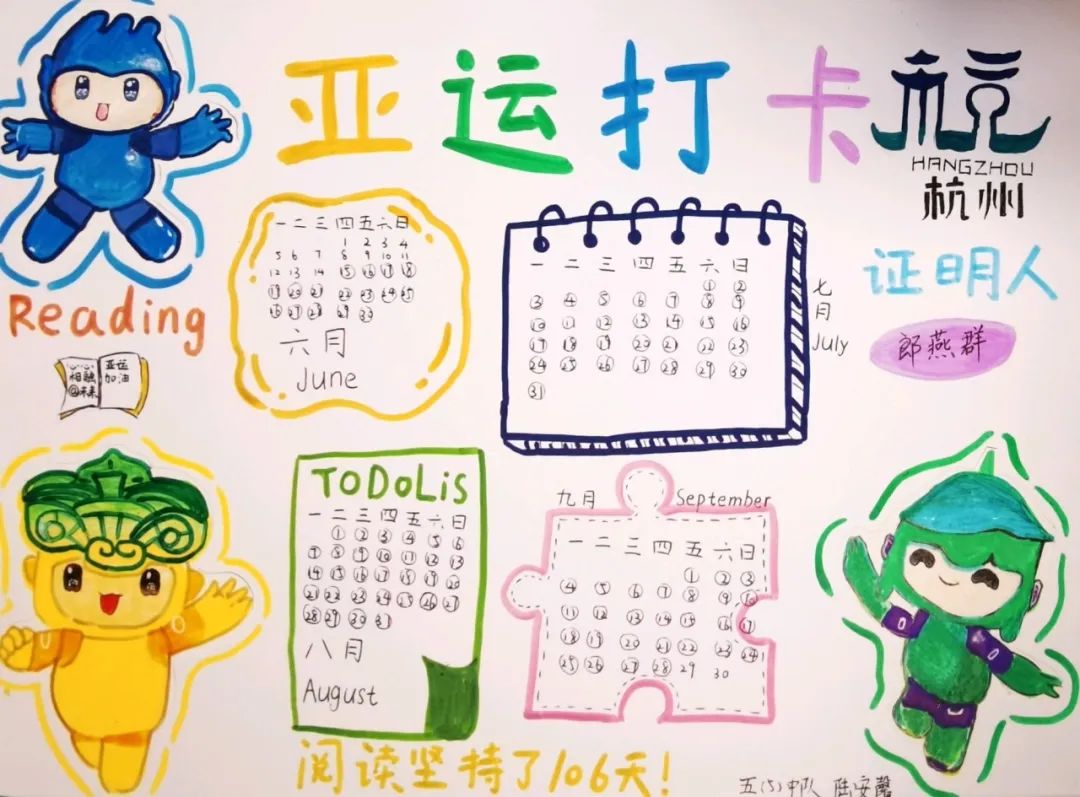 亚运打卡
HANGZHOU
杭州
证明人
郎燕群
Reading
相融
@未来
亚运
加油
一 二 三 四 五 六 日
1 2 3 4
5 6 7 8 9 10 11
12 13 14 15 16 17 18
19 20 21 22 23 24 25
26 27 28 29 30
六月
June
一 二 三 四 五 六 日
1 2
3 4 5 6 7 8 9
10 11 12 13 14 15 16
17 18 19 20 21 22 23
24 25 26 27 28 29 30
31
七月
July
TODOLIS
一 二 三 四 五 六 日
1 2 3 4 5 6
7 8 9 10 11 12 13
14 15 16 17 18 19 20
21 22 23 24 25 26 27
28 29 30 31
八月
August
九月 September
一 二 三 四 五 六 日
1 2 3
4 5 6 7 8 9 10
11 12 13 14 15 16 17
18 19 20 21 22 23 24
25 26 27 28 29 30
阅读坚持了106天!
五(5)中队 陆安馨